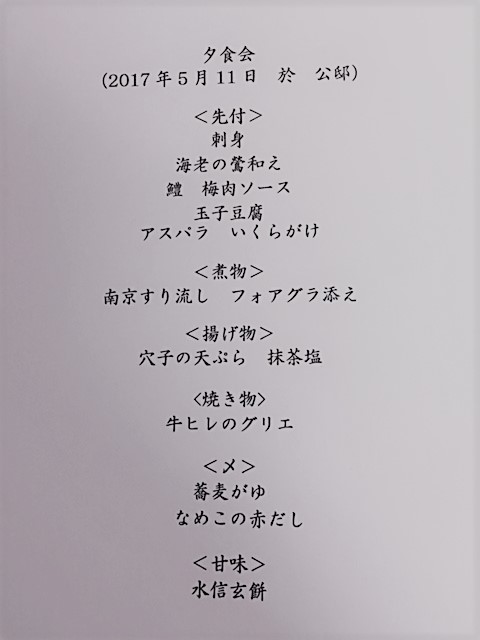 夕食会
(2017年5月11日　於　公邸)
＜先付＞
刺身
海老の鶯和え
鱧　梅肉ソース
玉子豆腐
アスパラ　いくらがけ
＜煮物＞
南京すり流し　フォアグラ添え
＜揚げ物＞
穴子の天ぷら　抹茶塩
<焼き物>
牛ヒレのグリエ
＜〆＞
蕎麦がゆ
なめこの赤だし
＜甘味＞
水信玄餅